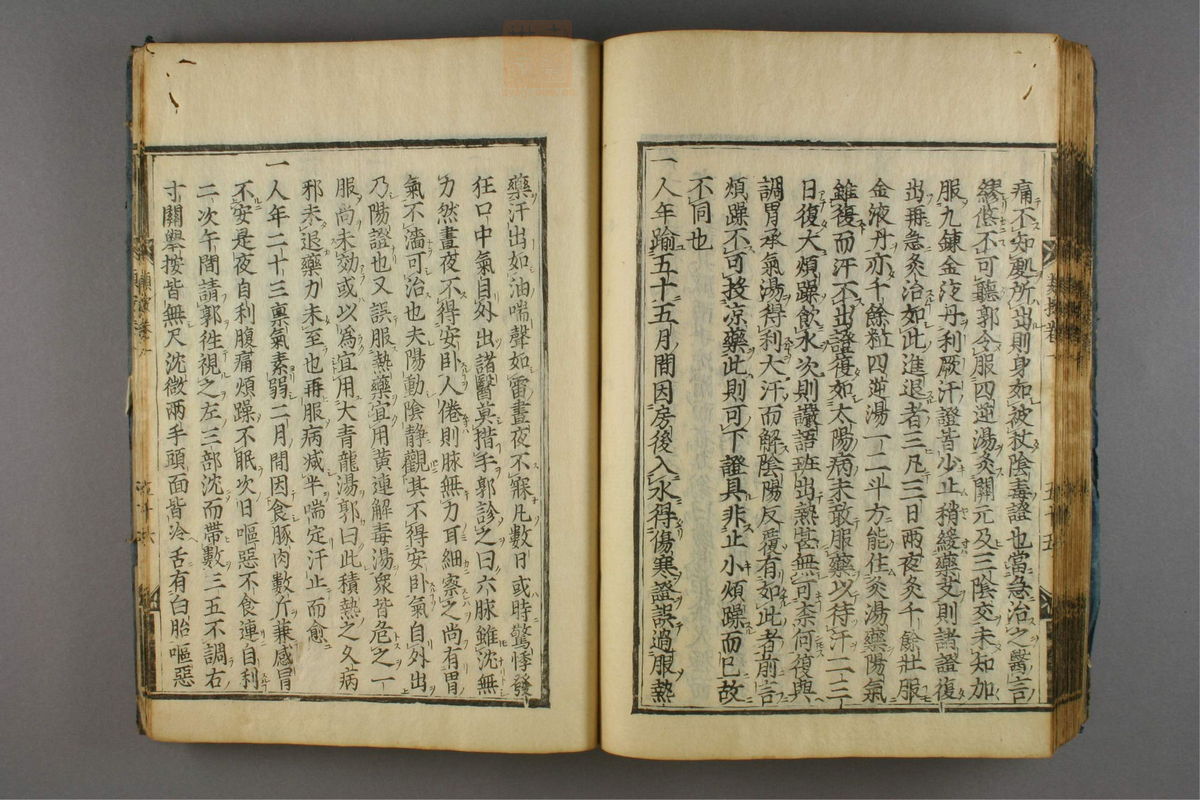 痛不知處所出則身如被杖陰毒證也當急治之醫言
繆悠不可聽郭令服四逆湯灸關元及三陰交未知加
服九錬金液丹利厥汗證皆少止稍緩藥艾則諸證復
出再急灸治如此進退者三凡三日兩夜灸千餘壯服
金液丹亦千餘粒四逆湯一二斗方能住灸湯藥陽氣
雖復而汗不出證復如太陽病未敢服藥以待汗二三
日復大煩躁飲水次則譫語斑出熱甚無可柰何復與
調胃承氣湯得利大汗而解陰陽反覆有如此者前言
煩躁不可投凉藥此則可下證具非止小煩躁而已故
不同也
一人年踰五十五月間因房後入水得傷寒證誤過服熱
藥汗出如油喘聲如雷晝夜不寐凡數日或時驚悸發
狂口中氣自外出諸醫莫措手郭診之曰六脉雖沈無
力然晝夜不得安卧人倦則脉無力耳細察之尚有胃
氣不濇可治也夫陽動陰静觀其不得安卧氣自外出
乃陽證也又誤服熱藥宜用黄連解毒湯衆皆危之一
服尚未効或以爲宜用大青龍湯郭曰此積熱之久病
邪未退藥力未至也再服病减半喘定汗止而愈
一人年二十三禀氣素弱二月間因食豚肉數斤兼感冒
不安是夜自利腹痛煩躁不眠次日嘔惡不食連自利
二次午間請郭徃視之左三部沈而帶數三五不調右
寸關擧按皆無尺沈微兩手頭面皆冷舌有白胎嘔惡